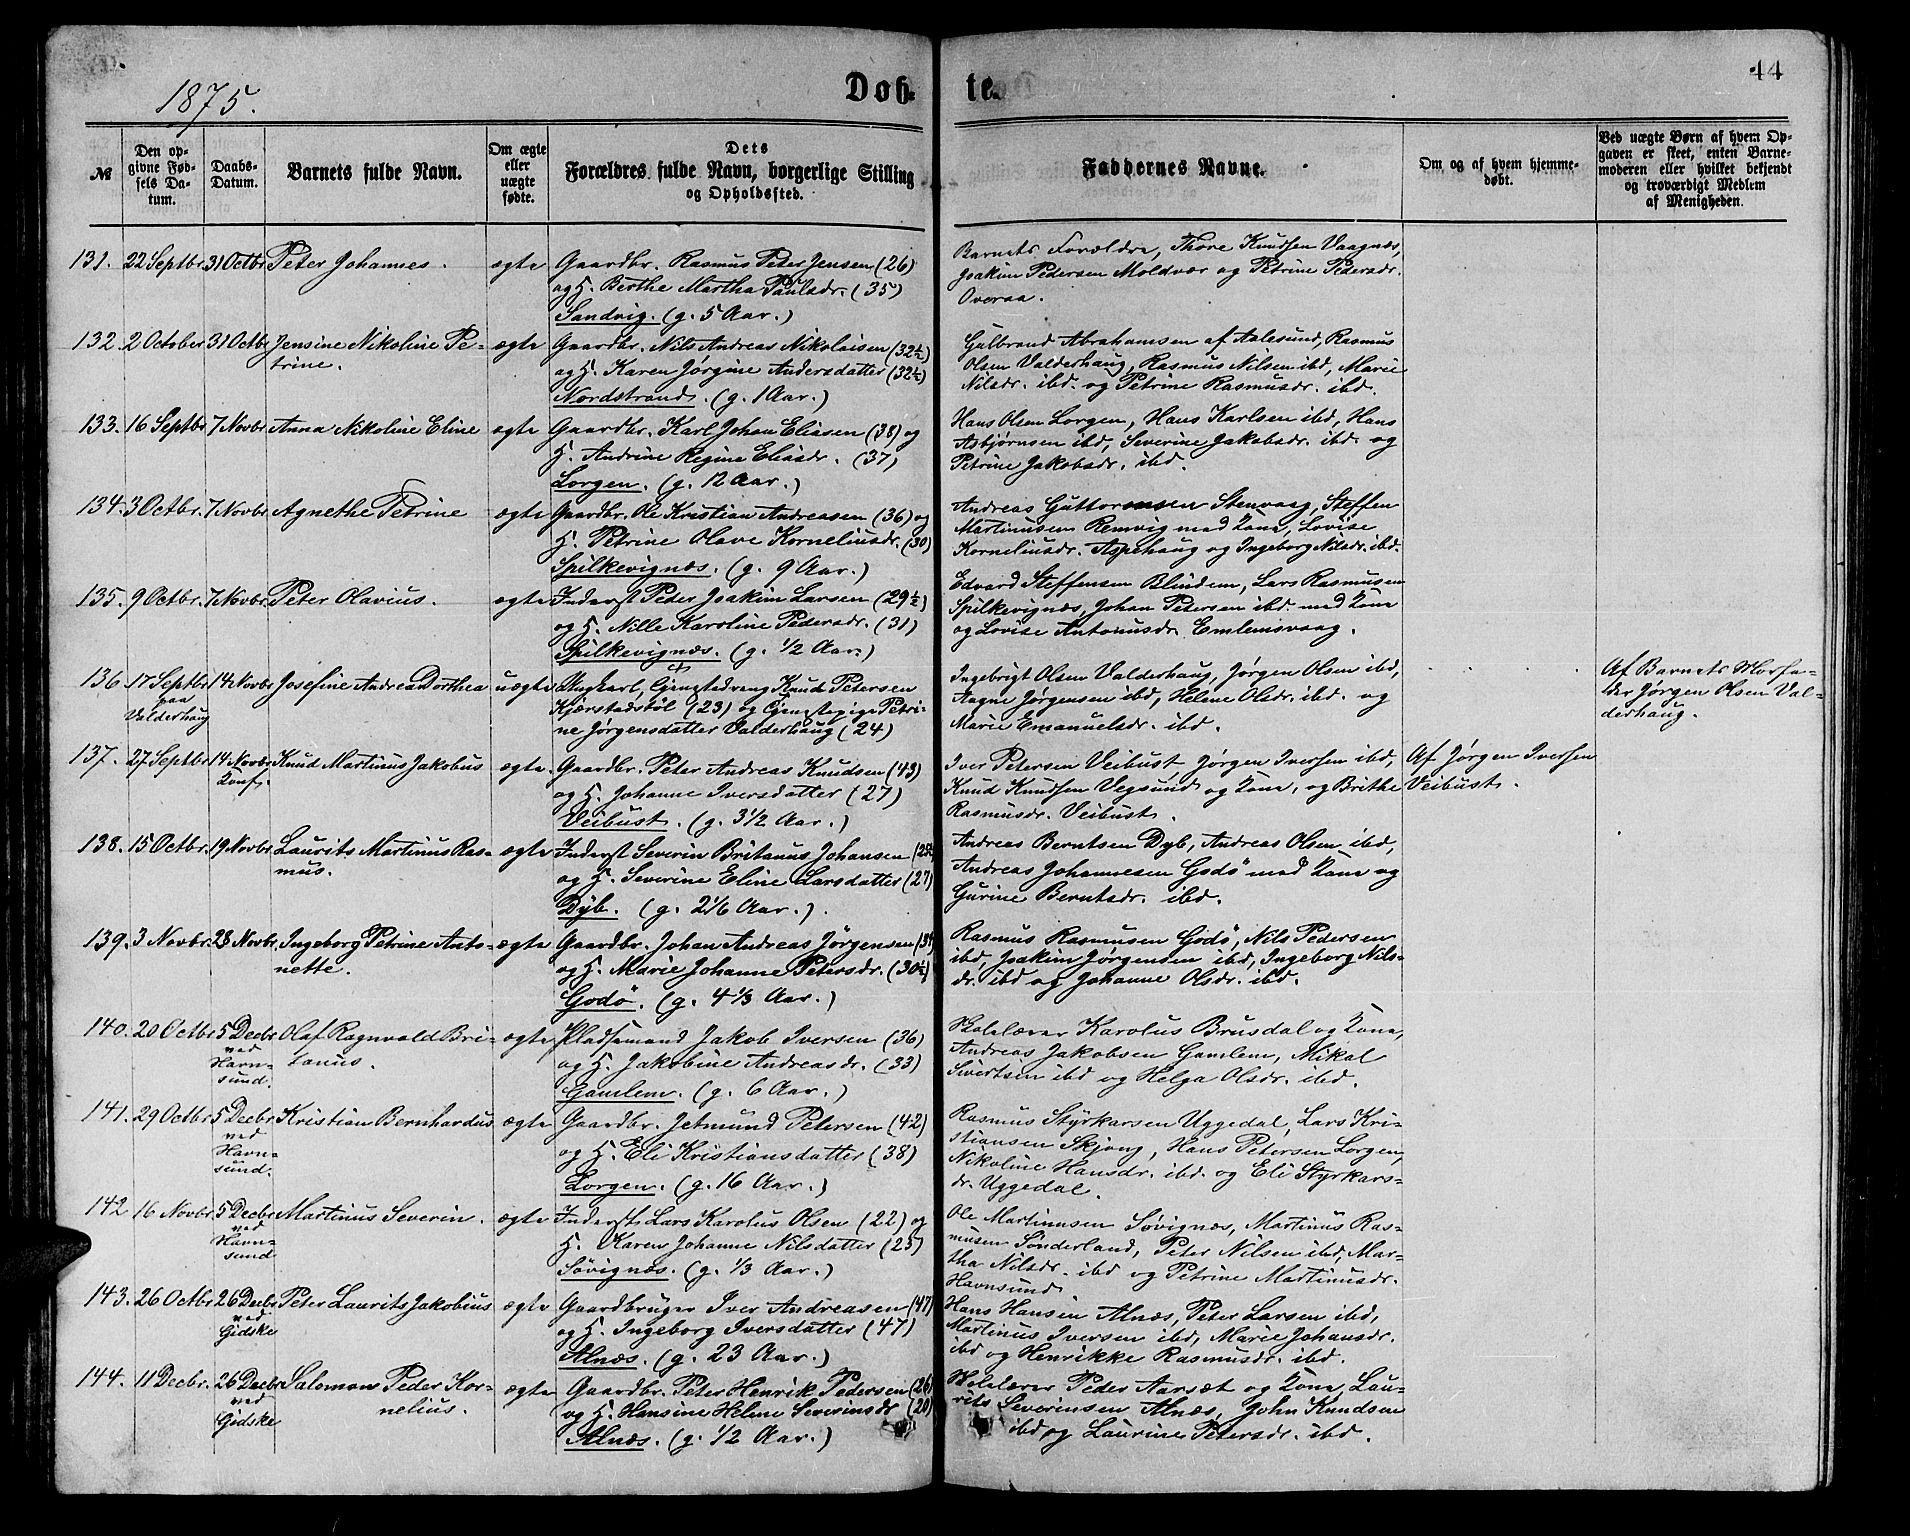 1875.
Døb-
te.
44
№
Den op-
givne Fød-
sels Da-
tum.
Daabs-
Datum.
Barnets fulde Navn.
Om ægte
eller
uægte
fødte.
Dets
Forældres fulde Navn, borgerlige Stilling
og Opholdssted.
Faddernes Navne.
Om og af hvem hjemme-
døbt.
Ved uægte Børn af hvem Op-
gaven er skeet, enten Barne-
moderen eller hvilket bekjendt
og troværdigt Medlem
af Menigheden.
131. 22 Septbr 31 Octbr Peter Johannes. ægte Gaardbr. Rasmus Peter Jensen (26)
og H. Berthe Martha Paulsdr. (35)
Sandvig. (g. 5 Aar.)
Barnets Forældre, Thore Knudsen Vaagnæs,
Joakim Pedersen Moldvær og Petrine Pedersdr.
Overaa.
132. 2 October 31 Octbr Jensine Nikoline Pe- ægte Gaardbr. Nils Andreas Nikolaisen (32½)
trine. og H. Karen Jørgine Andersdatter (32½)
Nordstrand. (g. 1 Aar.)
Gulbrand Abrahamsen af Aalesund, Rasmus
Olsen Valderhaug, Rasmus Nilsen ibd, Marie
Nilsdr. ibd. og Petrine Rasmusdr. ibd.
133. 16 Septbr 7 Novbr Anna Nikoline Eline ægte Gaardbr. Karl Johan Eliasen (38) og
H. Andrine Regine Eliasdr. (37)
Lorgen. (g. 12 Aar.)
Hans Olsen Lorgen, Hans Karlsen ibd, Hans
Asbjørnsen ibd, Severine Jakobsdr. ibd. og
Petrine Jakobsdr. ibd.
134. 3 Octbr. 7 Novbr Agnethe Petrine ægte Gaardbr. Ole Kristian Andreasen (36) og
H. Petrine Olave Korneliusdr. (30)
Spilkevignæs. (g. 9 Aar.)
Andreas Guttormsen Stenvaag, Steffen
Martinusen Remvig med Kone, Lovise
Korneliusdr. Aspehaug og Ingeborg Nilsdr. ibd.
135. 9 Octbr. 7 Novbr Peter Olavius. ægte Inderst Peder Joakim Larsen (29½)
og H. Nille Karoline Pedersdr. (31)
Spilkevignæs. (g. ½ Aar.)
Edvard Steffensen Blindem, Lars Rasmusen
Spilkevignæs, Johan Petersen ibd med Kone
og Lovise Antonusdr. Emlemsvaag.
136 17 Septbr 14 Novbr Josefine Andrea Dorthea uægte Ungkarl, Gjenstedreng Knud Petersen
paa
Valderhaug
Kjærstadsvol (23) og Gjenstepige Petri-
ne Jørgensdatter Valderhaug (24)
Ingebrigt Olsen Valderhaug, Jørgen Olsen ibd,
Aagne Jørgensen ibd, Heline Olsdr. ibd. og
Marie Emanuelsdr. ibd.
Af Barnets Morfa-
der Jørgen Olsen Val-
derhaug.
137. 27 Septbr 14 Novbr Knud Martinus Jakobus ægte. Gaardbr. Peter Andreas Knudsen (43)
Konf.
og H. Johanne Iversdatter (27)
Veibust. (g. 3½ Aar.)
Iver Petersen Veibust Jørgen Iversen ibd,
Knud Knudsen Vegsund og Kone, og Brithe
Rasmusdr. Veibust.
Af Jørgen Iversen
Veibust.
138. 15 Octbr. 19 Novbr. Laurits Martinus Ras- ægte Inderst Severin Britanus Johansen
mus. og H. Severine Eline Larsdatter (27)
Dyb. (g. 2 1/6 Aar.).
Andreas Berntsen Dyb, Andreas Olsen ibd,
Andreas Johannesen Godø med Kone og
Gurine Berntsdr. ibd.
139. 3 Novbr. 28 Novbr. Ingeborg Petrine Anto- ægte Gaardbr. Johan Andreas Jørgensen
nette. og H. Marie Johanne Petersdr. (30½)
Godø. (g. 4⅓ Aar.)
Rasmus Rasmusen Godø, Nils Pedersen
ibd, Joakim Jørgensen ibd, Ingeborg Nils-
dr. ibd og Johanne Olsdr. ibd.
140. 20 Octbr 5 Decbr Olaf Ragnvald Bri- ægte Pladsemand Jakob Iversen (36)
ved
Havn-
sund.
tanus. og H. Jakobine Andreasdr. (33)
Gamlem. (g. 6 Aar.)
Skolelærer Karolus Brusdal og Kone,
Andreas Jakobsen Gamlem, Mikal
Sivertsen ibd og Helga Olsdr. ibd.
141. 29 Octbr 5 Decbr Kristian Bernhardus ægte Gaardbr. Jetmund Petersen (42)
ved
Havn-
sund.
og H. Eli Kristiansdatter (38)
Lorgen. (g. 16 Aar.)
Rasmus Styrkarsen Uggedal, Lars Kri-
stiansen Skjong, Hans Petersen Lorgen,
Nikoline Hansdr. ibd. og Eli Styrkars-
dr. Uggedal.
142 16 Novbr. 5 Decbr Martinus Severin. ægte Inderst Lars Karolus Olsen (22) og
ved
Havn-
sund
H. Karen Johanne Nilsdatter (25)
Søvignæs. (g. ⅓ Aar.)
Ole Martinusen Søvignæs, Martinus Ras-
musen Sønderland, Peter Nilsen ibd, Mar-
tha Nilsdr. ibd og Petrine Martinusdr.
Havnsund
143. 26 Octbr 26 Decbr Peter Laurits Jakobius ægte Gaardbruger Iver Andreasen (47)
ved
Gidske
og H. Ingeborg Iversdatter (47)
Alnæs. (g. 23 Aar.)
Hans Hansen Alnæs, Peter Larsen ibd,
Martinus Iversen ibd, Marie Johansdr.
ibd og Henrikke Rasmusdr. ibd.
144. 11 Decbr. 26 Decbr Salomon Peder Kor- ægte Gaardbr. Peter Henrik Pedersen (26)
ved
Gidske
nelius. og H. Hansine Heline Severinsdr (20)
Alnæs. (g. ½ Aar.)
Skolelærer Peder Aarsæt og Kone, Lau-
rits Severinsen Alnæs, John Knudsen
ibd og Laurine Petersdr. ibd.